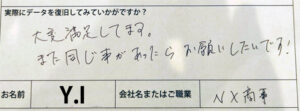 実際にデータを復旧してみていかがですか?
大変満足してます。
また同じ事があったらお願いしたいです!
お名前 Y.I 会社名またはご職業 NX商事